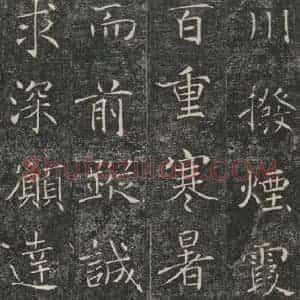 川撥煙霞
百重寒暑
而前蹤誠
求深願達